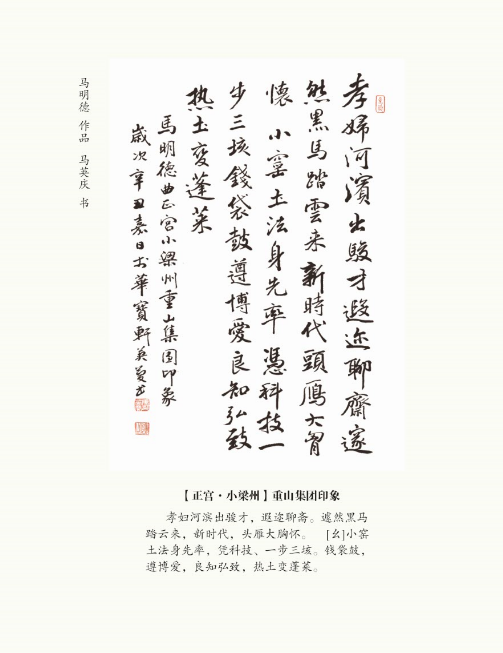 孝婦河濱出駿才遐迩聊齋遽
然黑馬踏雲来新時代頭鴈大胷
懷小窰土法身先率憑科技一
步三垓錢袋鼓遵博愛良知弘致
热土变蓬莱
馬明德曲正宫小梁州重山集團印象
歲次辛丑嘉日於華寶軒英慶书
马明德 作品 马英庆 书
【正宫·小梁州】重山集团印象
孝妇河滨出骏才，遐迩聊斋。遽然黑马
踏云来，新时代，头雁大胸怀。 [幺]小窑
土法身先率，凭科技、一步三垓。钱袋鼓，
遵博爱，良知弘致，热土变蓬莱。